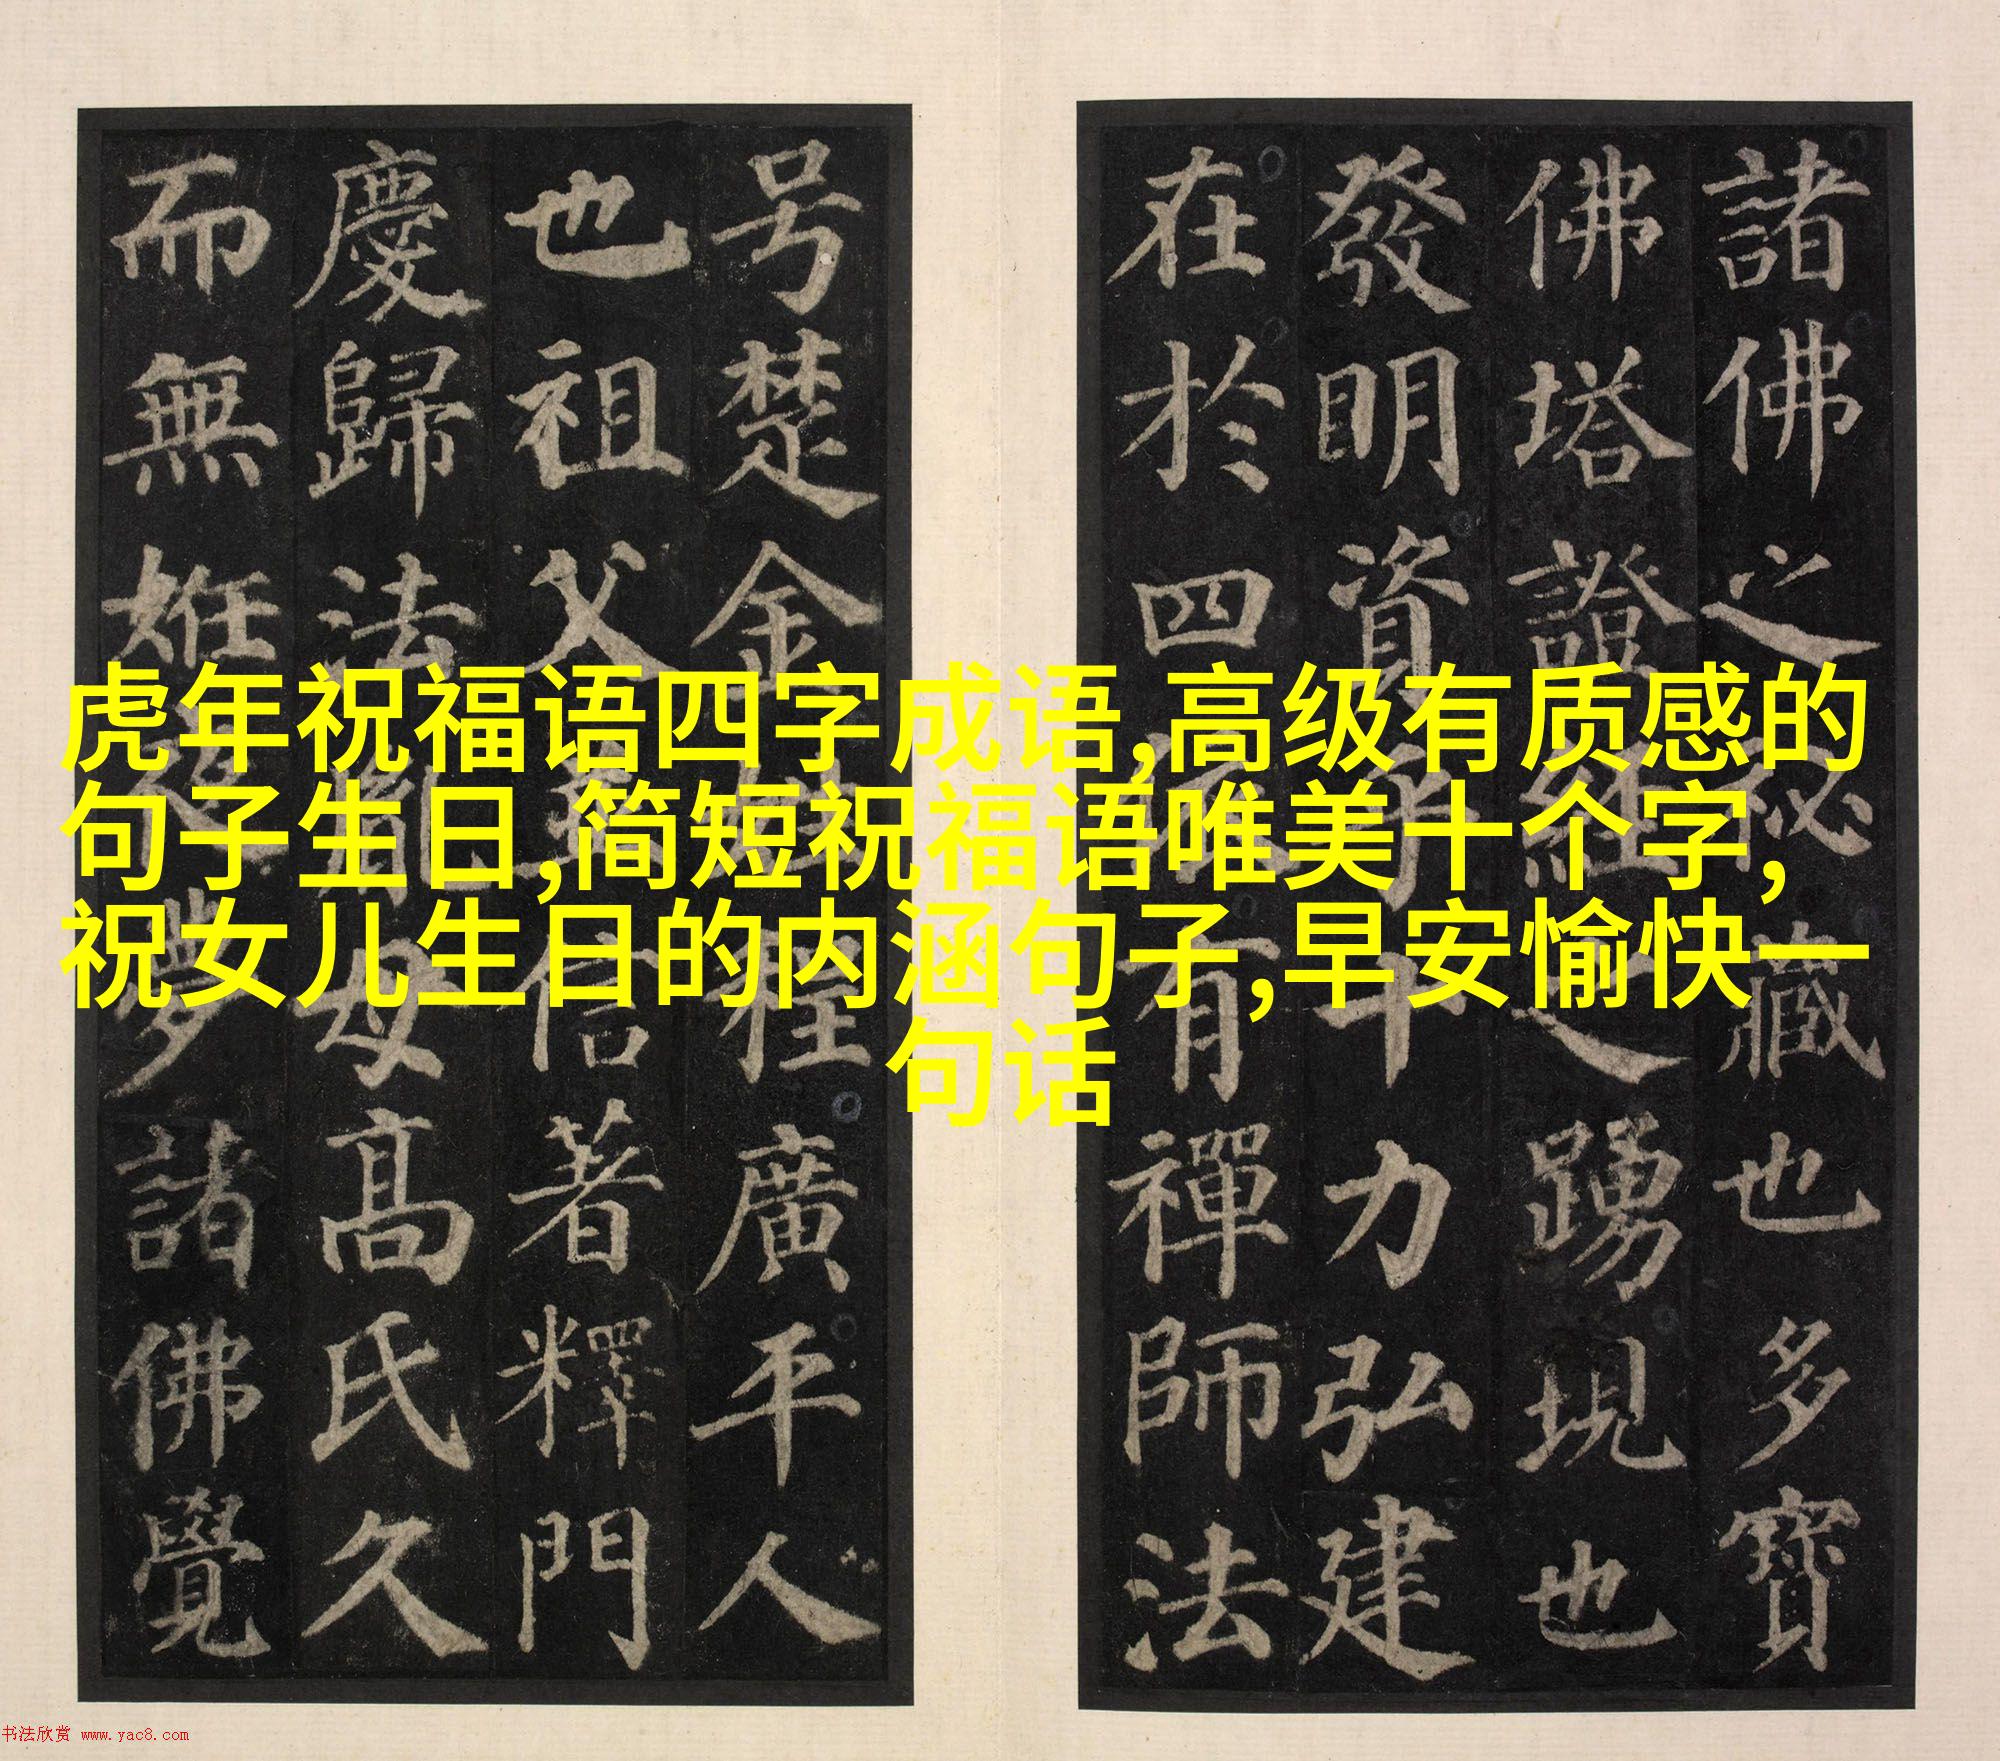 虎年祝福语四字成语,高级有质感的
句子生日,简短祝福语唯美十个字,
祝女儿生日的内涵句子,早安愉快一
句话
諸佛之秘藏也多寶
佛塔證經之踴現也
發明資乎十力弘建
在於四依有禪師法
号楚金姓程廣平人
也祖父並信著釋門
慶歸法胤母高氏久
而無姙夜夢諸佛覺
书法欣赏 www.yac8.com